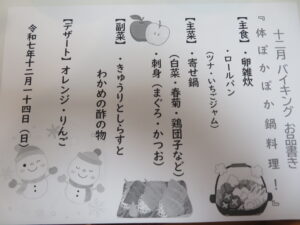 十二月 バイキング お品書き
『体ぽかぽか鍋料理！』
【主食】・卵雑炊
・ロールパン
（ツナ・いちごジャム）
【主菜】・寄せ鍋
（白菜・春菊・鶏団子など）
・刺身（まぐろ・かつお）
【副菜】
・きゅうりとしらすと
わかめの酢の物
【デザート】オレンジ・りんご
令和七年十二月一十四日（日）